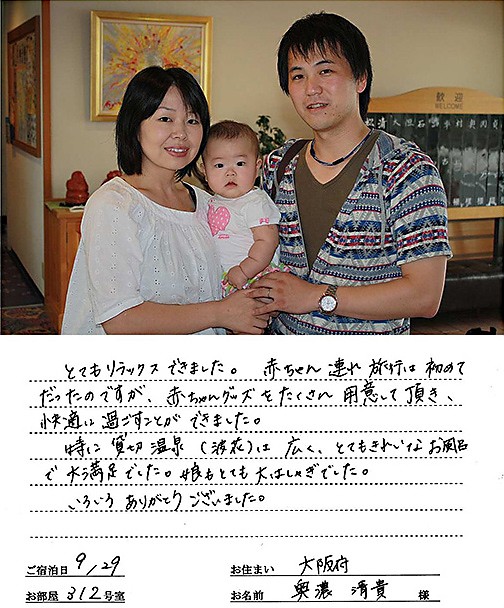 歓迎
WELCOME
とてもリラックスできました。 赤ちゃん連れ旅行は初めて
だったのですが、赤ちゃんグッズをたくさん用意して頂き、
快適に過ごすことができました。
特に貸切温泉（波花）は広く、とてもきれいなお風呂
で大満足でした。娘もとても大はしゃぎでした。
いろいろありがとうございました。
ご宿泊日 9/29 お住まい 大阪府
お部屋 312号室 お名前 奥濃 清貴 様